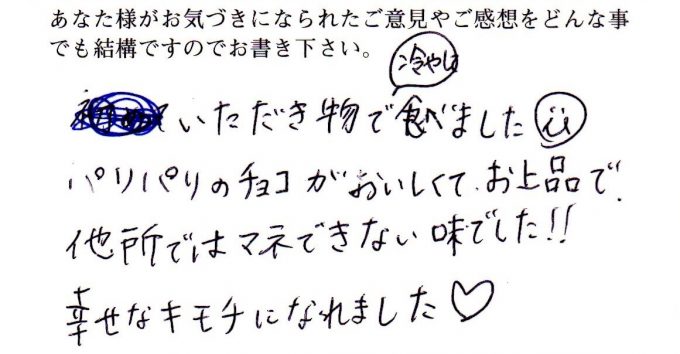 あなた様がお気づきになられたご意見やご感想をどんな事
でも結構ですのでお書き下さい。
冷やし
いただき物で食べました
パリパリのチョコがおいしくて、お上品で、
他所ではマネできない味でした!!
幸せなキモチになれました♡